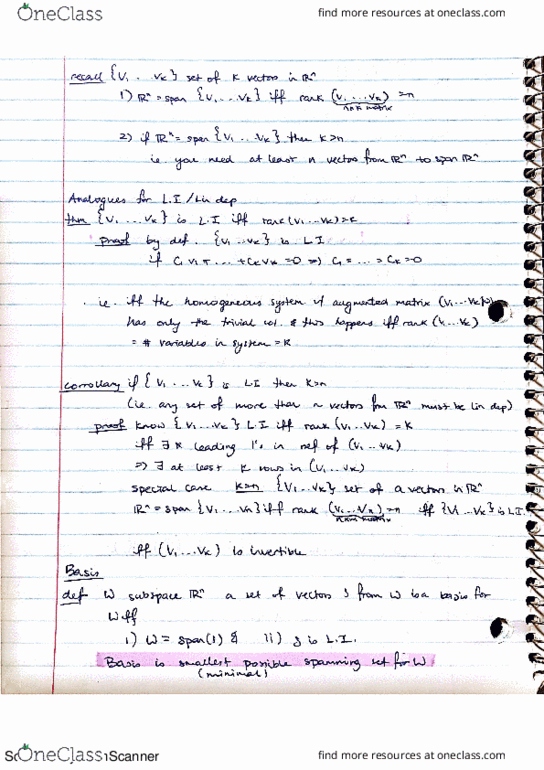 OneClass find more resources at oneclass.com
recall {V₁ .. Vk} set of k vectors in ℝⁿ
1) ℝⁿ = span {V₁ ... Vk} iff rank (V₁ ... Vk) = n
nxk matrix
2) if ℝⁿ = span {V₁ ... Vk} then k>n
i.e. you need at least n vectors from ℝⁿ to span ℝⁿ
Analogues for L.I / Lin dep
thm {V₁ ... Vk} is L.I iff rank (V₁ ... Vk) = k
proof by def. {V₁ ... Vk} is L.I
if C₁V₁ + ... + CkVk = 0 => C₁ = ... = Ck = 0
. i.e. iff the homogeneous system w/ augmented matrix (V₁ ... Vk|0)
has only the trivial sol. & this happens iff rank (V₁ ... Vk)
= # variables in system = k
corrollary if {V₁ ... Vk} is LI then k>n
(i.e. any set of more than n vectors from ℝⁿ must be lin dep)
proof know {V₁ ... Vk} L.I iff rank (V₁ ... Vk) = k
iff ∃ k leading 1's in ref of (V₁ .. Vk)
=> ∃ at least k rows in (V₁ ... Vk)
special case k=n {V₁ ... Vk} set of n vectors in ℝⁿ
ℝⁿ = span {V₁ ... Vn} iff rank (V₁ ... Vn) = n iff {V₁ ... Vk} is L.I.
nxn matrix
iff (V₁ ... Vk) is invertible
Basis
def W subspace ℝⁿ a set of vectors S from W is a basis for
W iff
i) W = span(S) & ii) S is L.I.
Basis is smallest possible spanning set for W
(minimal)
OneClass Scanner find more resources at oneclass.com